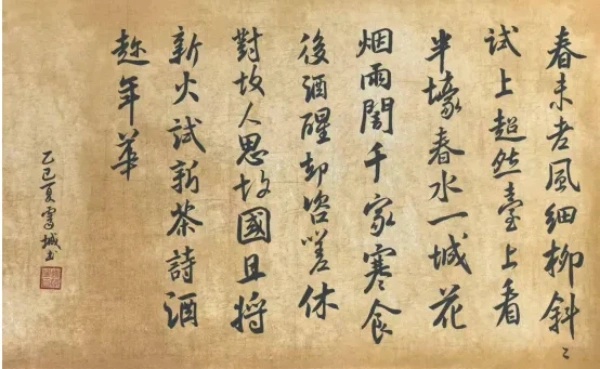 春未老風細柳斜〻
試上超然臺上看
半壕春水一城花
烟雨闇千家寒食
後酒醒却咨嗟休
對故人思故國且將
新火試新茶詩酒
趂年華
乙巳夏城书